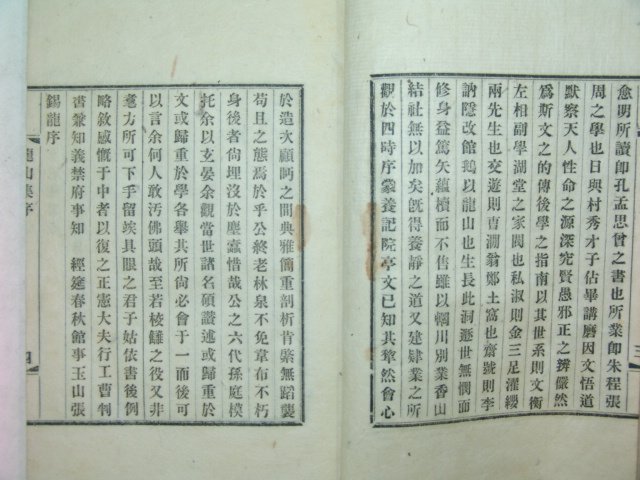 愈明所讀卽孔孟思曾之書也所業卽朱程張
周之學也日與村秀才子佔畢講磨因文悟道
默察天人性命之源深究賢愚邪正之辨儼然
爲斯文之的傳後學之指南以其世系則文衡
左相副學湖堂之家閥也私淑則金三足濯纓
兩先生也交遊則曹澗翁鄭土窩也齋號則李
訥隱改館鵝以龍山也生長此洞遯世無憫而
修身益篤矢蘊櫝而不售雖以輞川別業香山
結社無以加矣旣得養靜之道又建肄業之所
觀於四時序蒙養記院亭文已知其犂然會心
於造次顧眄之間典雅簡重剖析肯綮無蹈襲
苟且之態焉於乎公終老林泉不免韋布不朽
身後者尙埋沒於塵蠹惜哉公之六代孫庭樸
托余以玄晏余觀當世諸名碩讚述或歸重於
文或歸重於學各舉其所尙必會于一而後可
以言余何人敢汚佛頭哉至若棱讎之役又非
耄方所可下手留竢具眼之君子姑依書後例
略敘感慨于中者以復之正憲大夫行工曹判
書兼知義禁府事知 經筵春秋館事玉山張
錫龍序
龍山集序
四
三